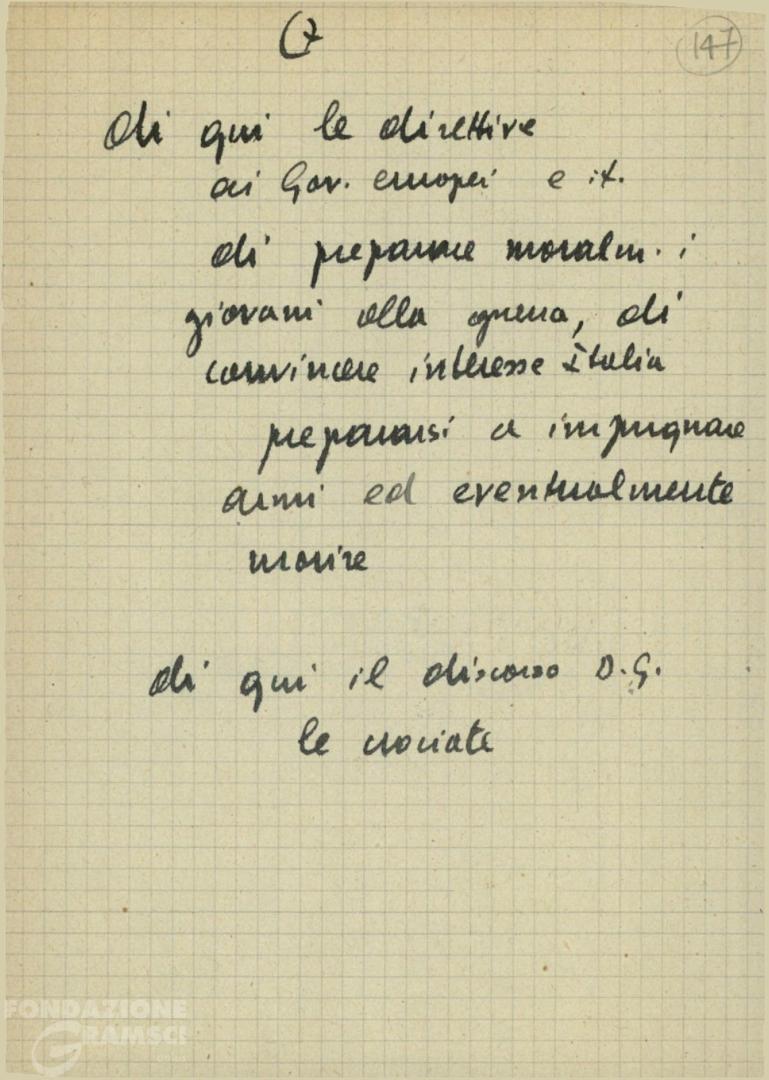 (7
147
di qui le direttive
ai Gov. europei e it.
di preparare moralm. i
giovani alla guerra, di
convincere interesse Italia
prepararsi a impugnare
armi ed eventualmente
morire
di qui il discorso D.G.
le crociate
FONDAZIONE
GRAMSCI